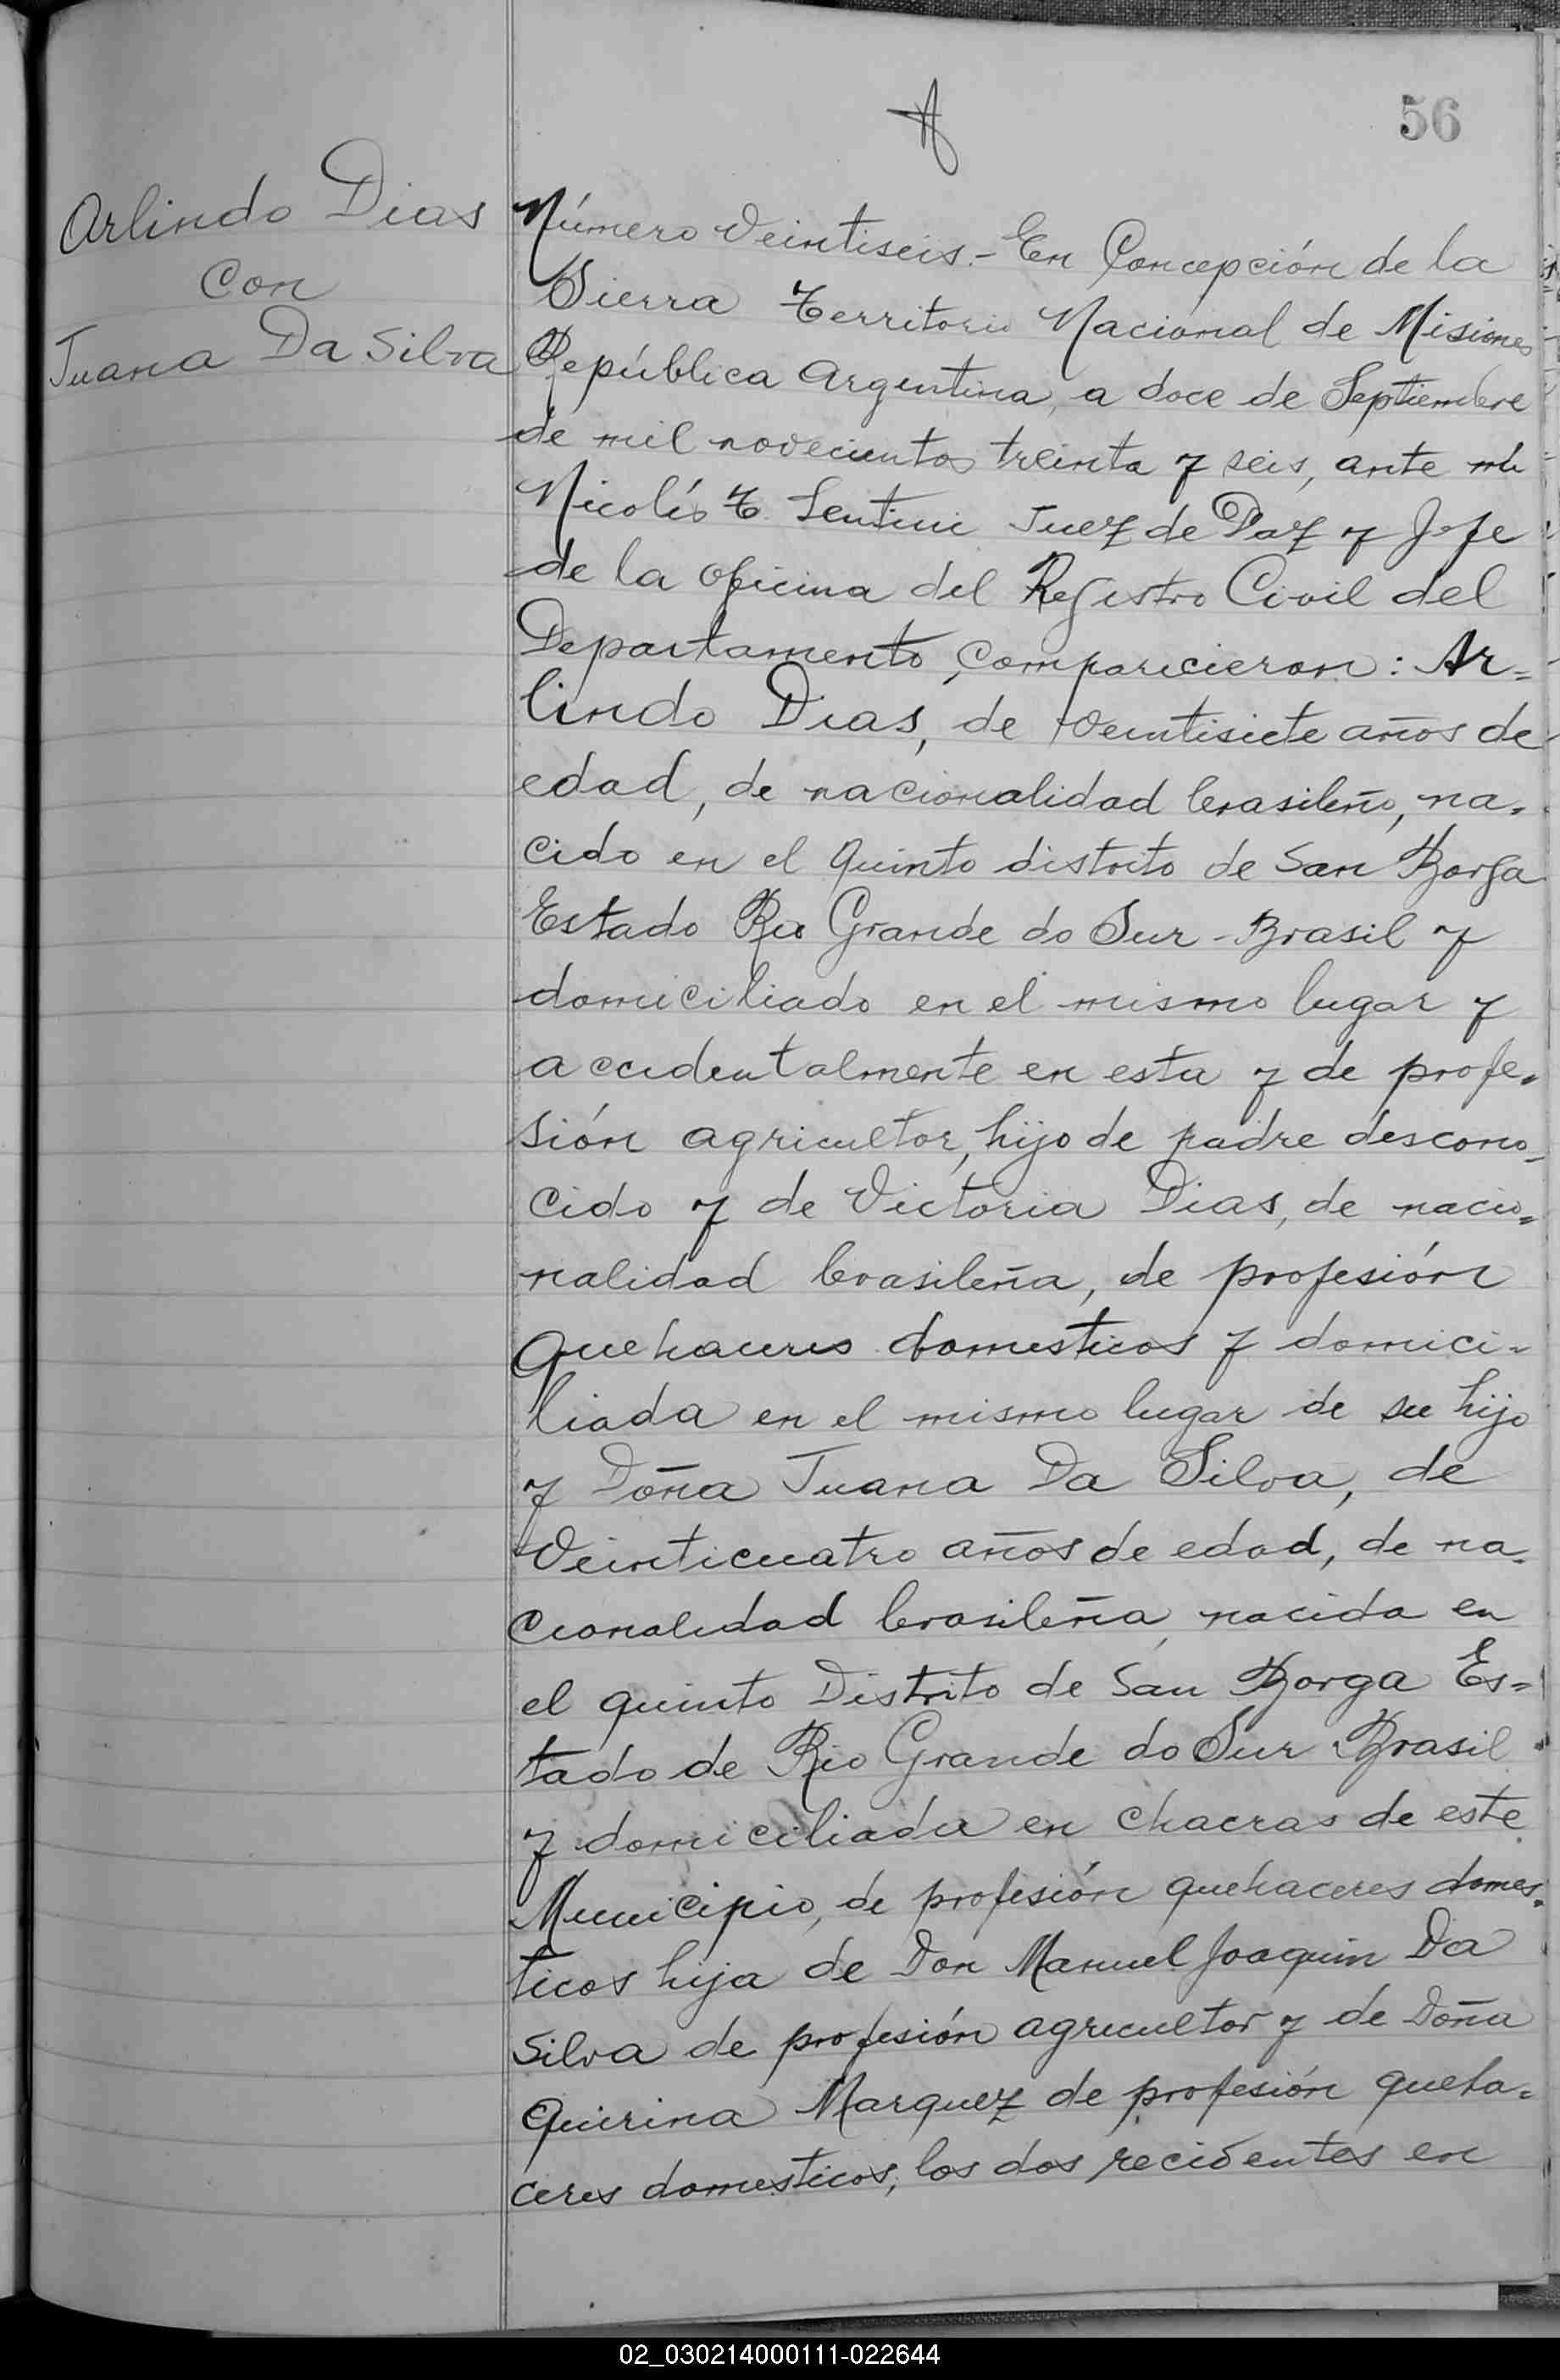 56
Arlindo Dias
con
Juana Da Silva
Número Veintiseis.- En Concepción de la
Sierra Territorio Nacional de Misiones
República Argentina, a doce de Septiembre
de mil novecientos treinta y seis, ante mi
Nicolás T. Sentini Juez de Paz y Jefe
de la oficina del Registro Civil del
Departamento, comparicieron: Ar=
lindo Dias, de veintisiete años de
edad, de nacionalidad brasileño, na-
cido en el quinto distrito de San Borja
Estado Rio Grande do Sur - Brasil y
domiciliado en el mismo lugar y
accidentalmente en esta y de profe-
sión agricultor, hijo de padre descono-
cido y de Victoria Dias, de nacio=
nalidad brasileña, de profesión
quehaceres domesticos y domici-
liada en el mismo lugar de su hijo
y Doña Juana Da Silva, de
Veinticuatro años de edad, de na-
cionalidad brasileña, nacida en
el quinto Distrito de San Borga Es=
tado de Rio Grande do Sur Brasil
y domiciliada en chacras de este
Municipio, de profesión quehaceres domes-
ticos hija de Don Manuel Joaquin Da
Silva de profesión agricultor y de Doña
Quirina Marquez de profesión queha-
ceres domesticos, los dos recidentes en
02_030214000111-022644